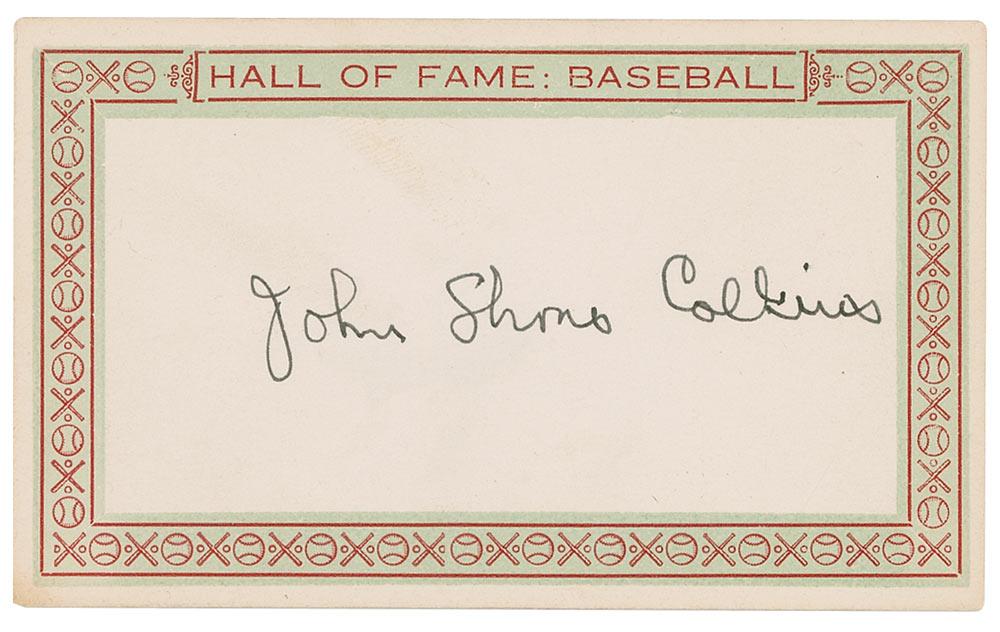 HALL OF FAME: BASEBALL
John Shano Collins